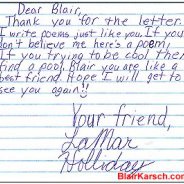 Dear Blair,
Thank you for the letter.
I write poems just like you. If you
don't believe me here's a poem,
If you trying to be cool then
find a pool. Blair you are like a
best friend. Hope I will get to
see you again!!
Your friend,
LaMar
Holliday
BlairKarsch.com